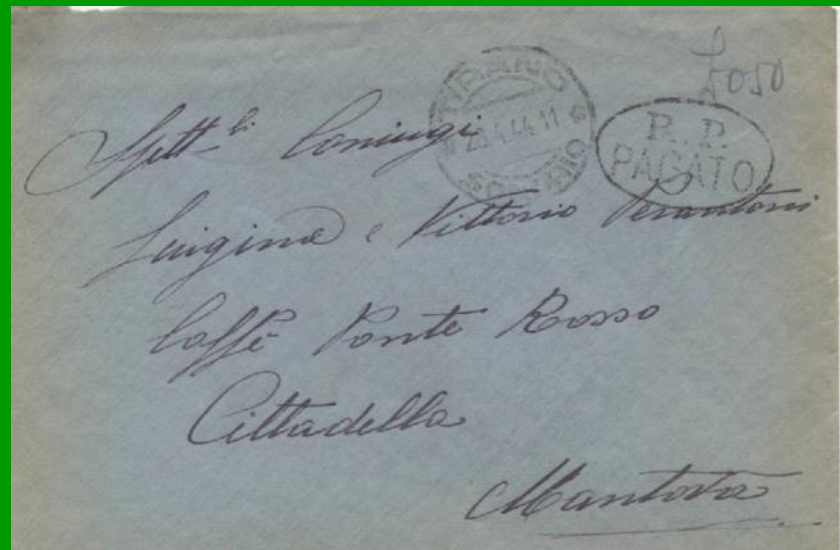 L 050
TIRANO
28.4.44.11
R. P.
PAGATO
Spett.li Coniugi
Luigina e Vittorio Perantoni
Caffè Ponte Rosso
Cittadella
Mantova